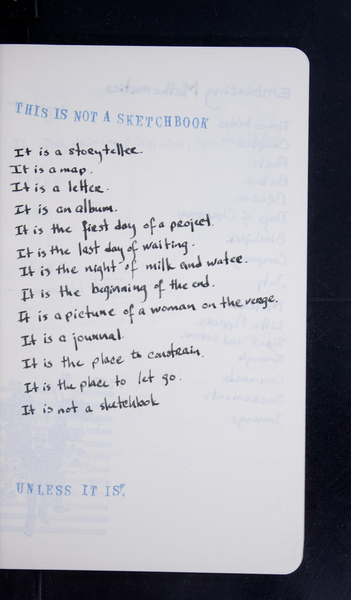 THIS IS NOT A SKETCHBOOK
It is a storyteller.
It is a map.
It is a letter.
It is an album.
It is the first day of a project.
It is the last day of waiting.
It is the night of milk and water.
It is the beginning of the end.
It is a picture of a woman on the verge.
It is a journal.
It is the place to constrain.
It is the place to let go.
It is not a sketchbook
UNLESS IT IS.